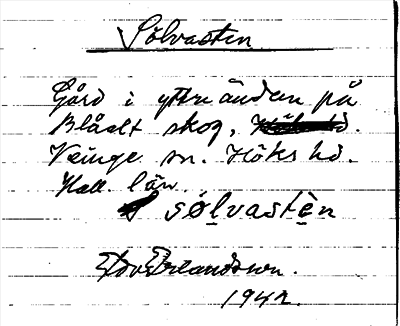 Sölvasten
Gård i yttre änden på
Blåalt skog,
Veinge sn. Höks hd.
Hall. län.
sø̱lvastè̱n
Edv. Erlandsson.
1942.